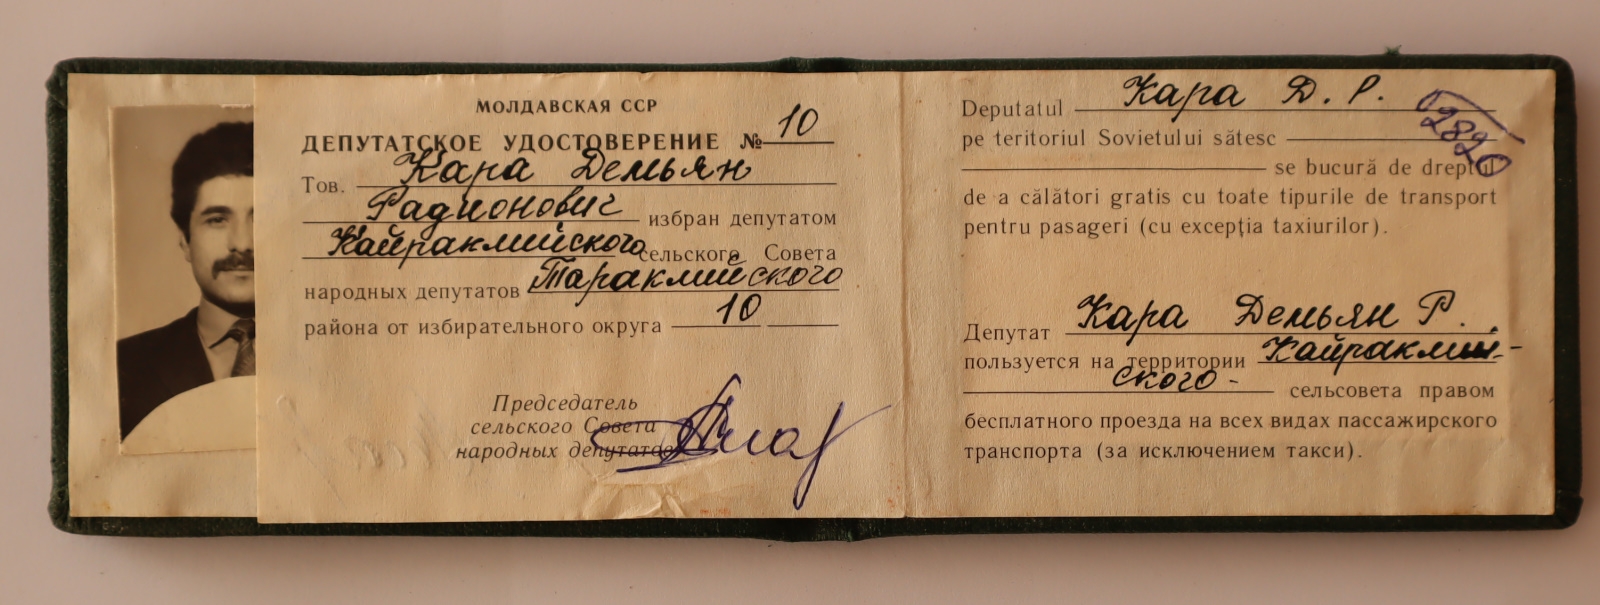 МОЛДАВСКАЯ ССР
ДЕПУТАТСКОЕ УДОСТОВЕРЕНИЕ № 10
Тов. Кара Демьян
Радионович избран депутатом
Кайраклийского сельского Совета
народных депутатов Тараклийского
района от избирательного округа 10
Председатель
сельского Совета
народных депутатов
Deputatul Кара Д. Р.
2820
pe teritoriul Sovietului sătesc
se bucură de dreptul
de a călători gratis cu toate tipurile de transport
pentru pasageri (cu excepția taxiurilor).
Депутат Кара Демьян Р.
пользуется на территории Кайраклий-
ского - сельсовета правом
бесплатного проезда на всех видах пассажирского
транспорта (за исключением такси).